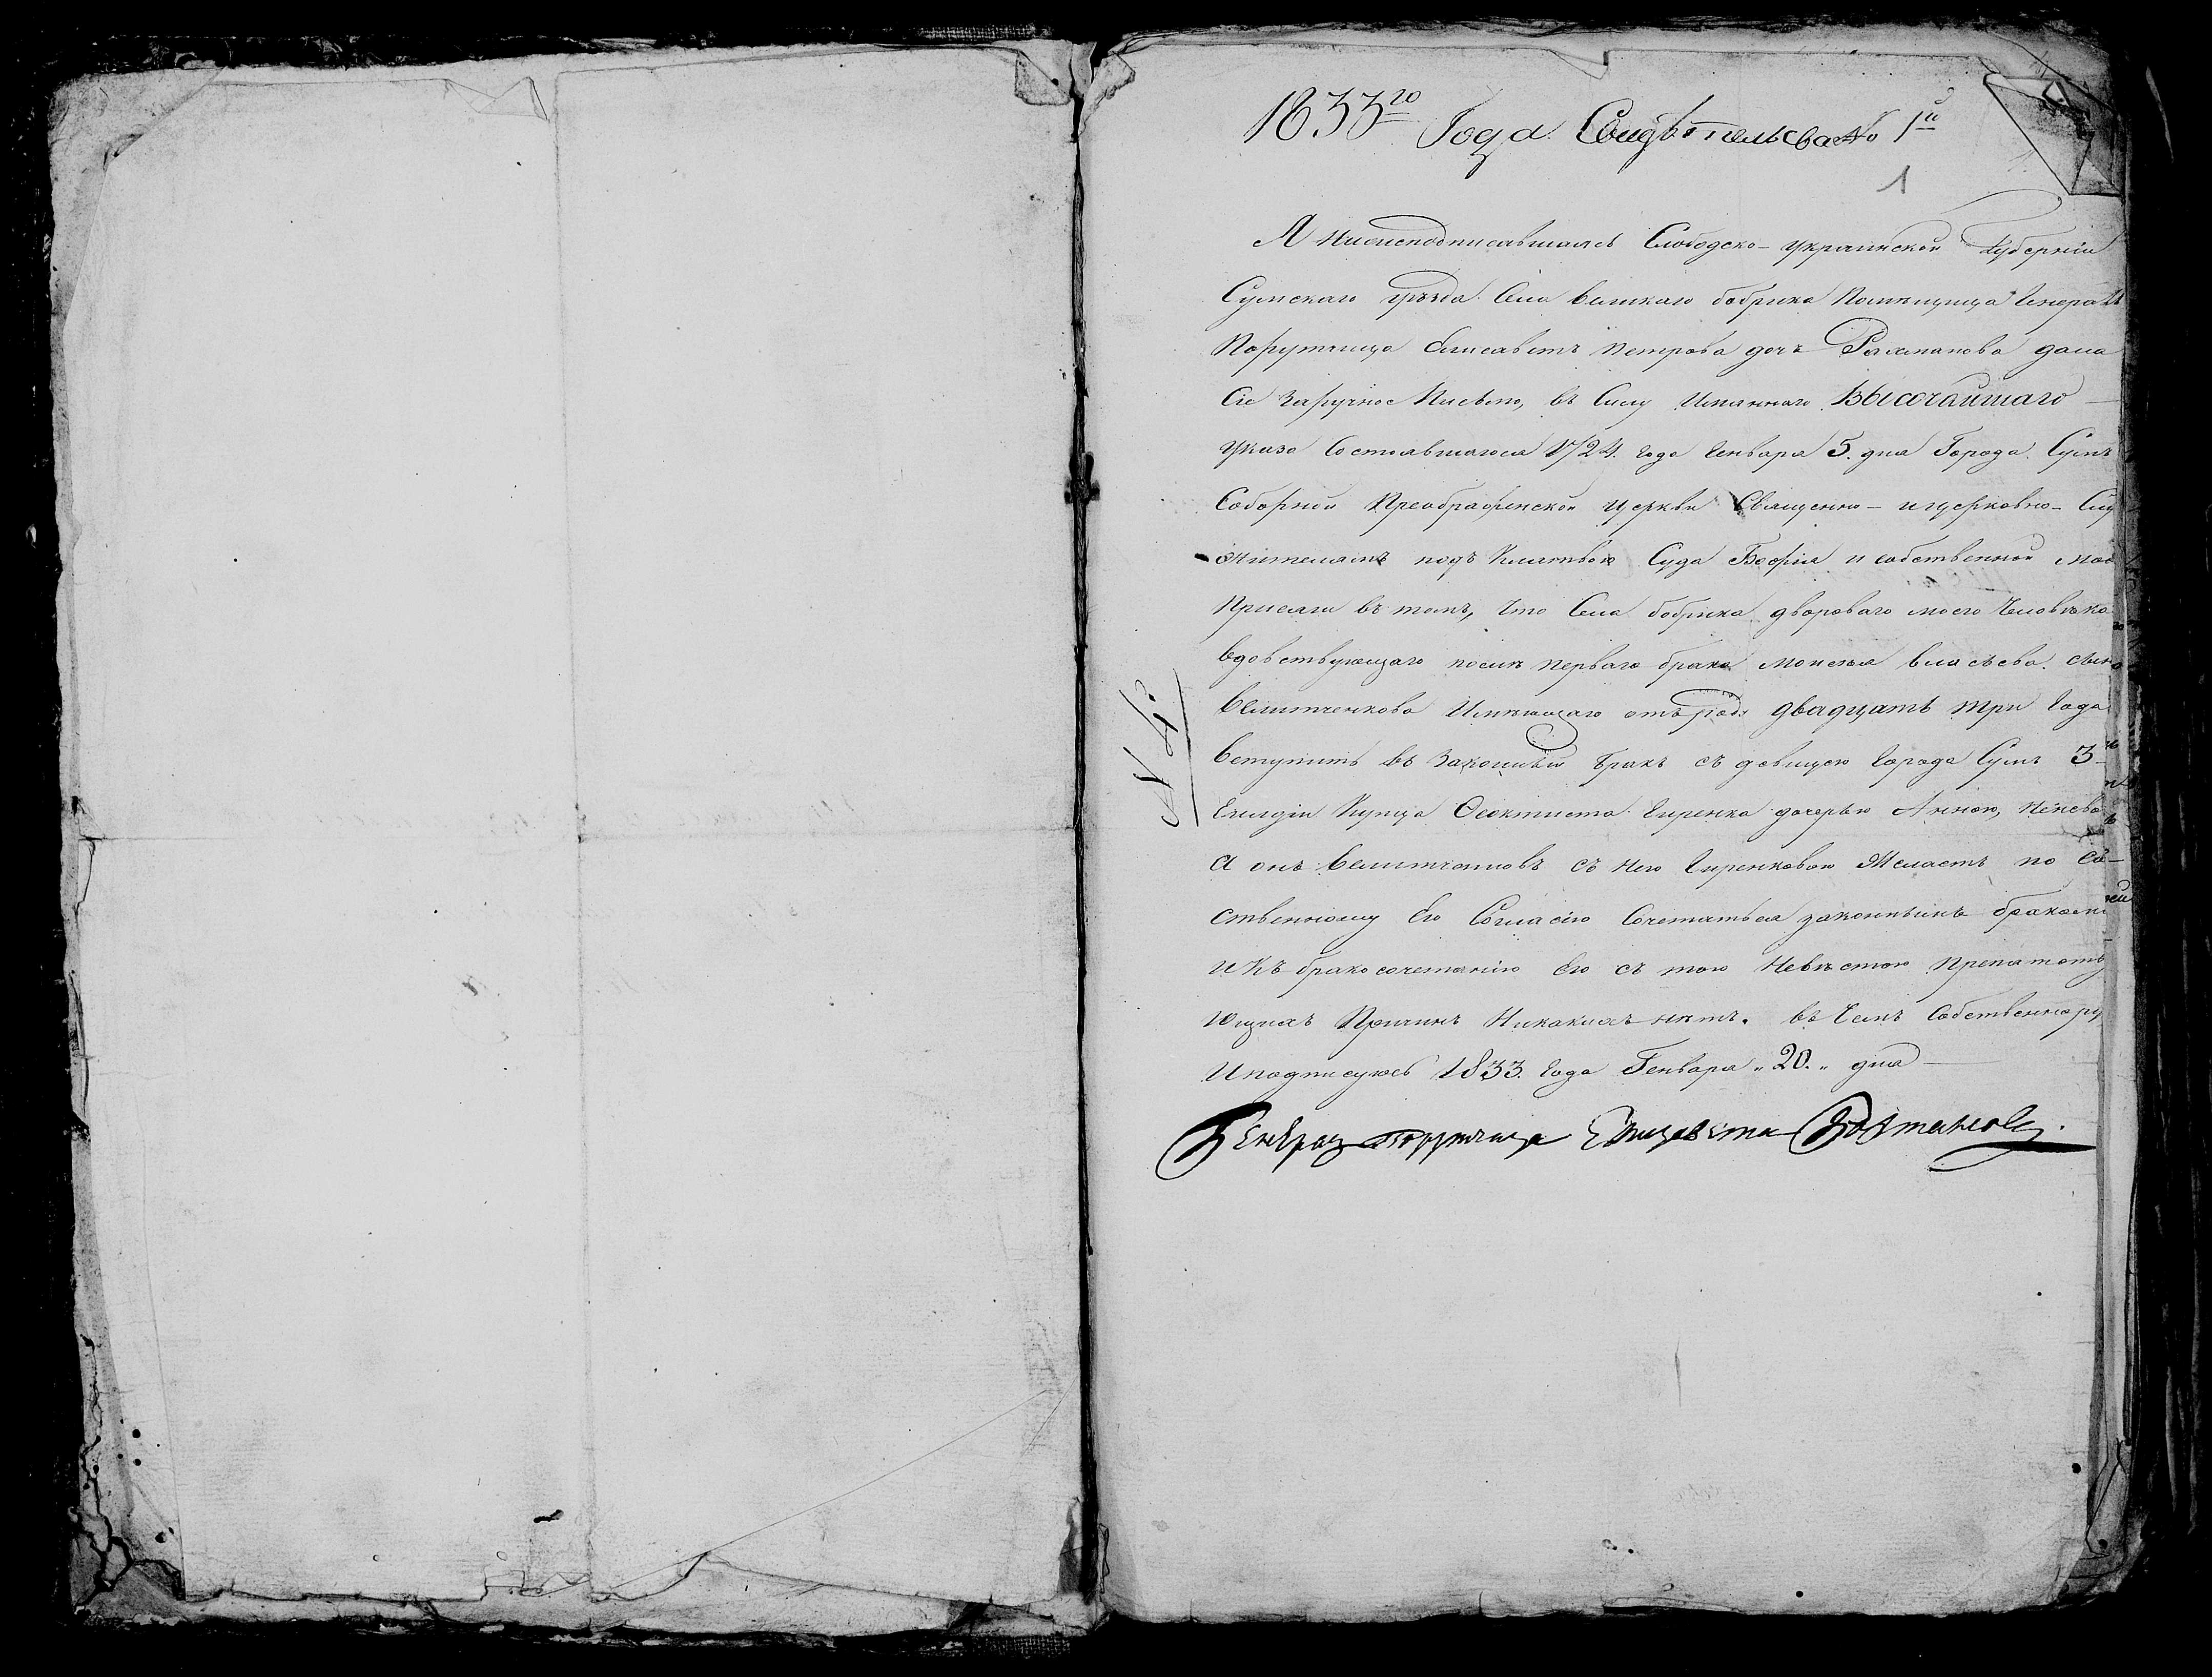 1833го Года Свидѣтельсва No 1й
1
Я нижеподписавшаясь Слободско-украинской Губерніи
Сумскаго уѣзда Села великаго бобрика Помѣщица Генералъ
Порутчица Елисаветъ Петрова дочъ Рахманова дала
Сіе Заручное Письмо, въ Силу Имяннаго Высочайшаго
Указа Состоявшагося 1724. Года Генваря 5. дня Города Сумъ
Соборной Преображенской Церкви Священно- и церковно- Слу
жителямъ подъ Клятвою Суда Божія и собственной моей
Присяги въ томъ, Что Села бобрика двороваго моего Человѣка
вдовствующаго послѣ перваго брака Моисея власьева сына
Велитченкова Имѣющаго отъ роду двадцать три Года
вступить въ Законный бракъ съ девицею Города Сумъ 3й
Гилдіи Купца Феоктиста Гиренка дочерью Анною,
а онъ съ нею Гиренковою Желаетъ по Соб
ственному Его Согласію Сочетаться законнымъ бракомъ
и Къ бракосочетанію Его съ тою Невѣстою Препятств
ующихъ Причинъ Никакихъ нѣтъ. въ Чемъ Собственнору
Иподписуюсь 1833. Года Генваря „20.„ дня
Генерал Порутчица Елизавета Рахманова.